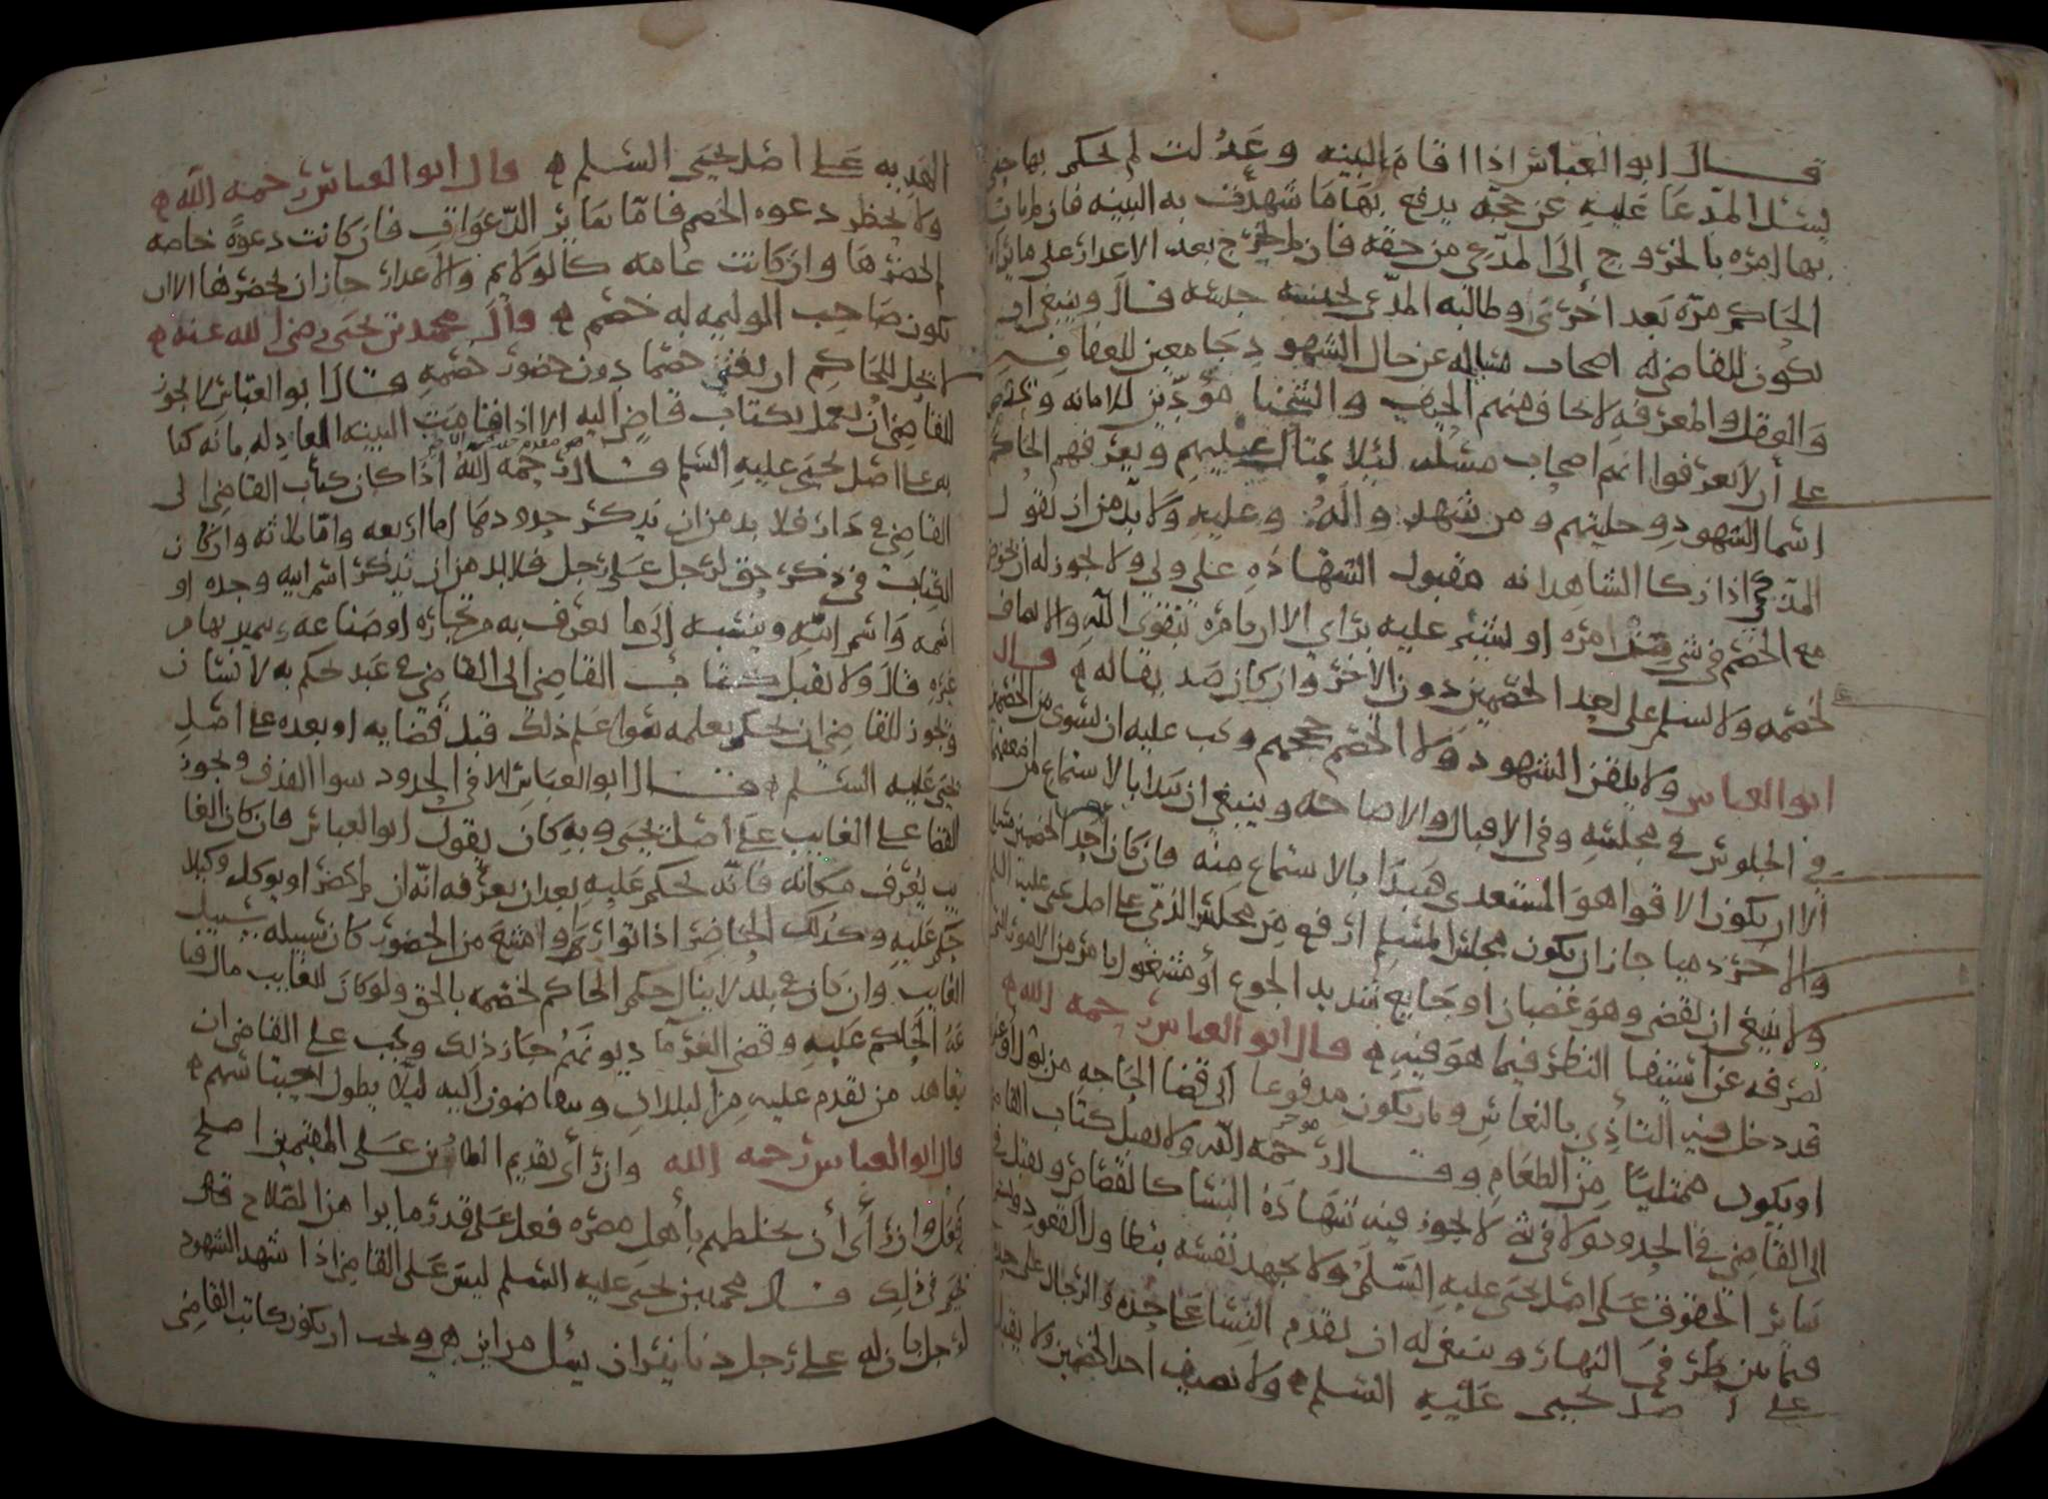 قال ابو العباس اذا اقام البينه وعدلت لم يحكم بها حتى
يسئل المدعا عليه عن حجه يدفع بها ما شهدت به البينه فان لم يات
بها امره بالخروج الى المدعي من حقه فان لم يخرج بعد الاعذار على ما يراه
الحاكم مره بعد اخرى وطالبه المدعي بحبسه حبسه قال وينبغي ان
يكون للقاضي اصحاب مسايله عن حال الشهود جامعين للعفاف
والعقل والمعرفه لا يخاف منهم الحيف والشحنا مؤدين للامانه ويجتهد
على أن لا يعرفوا انهم اصحاب مسئله لئلا يحتال عليهم ويعرفهم الحاكم
اسما الشهود وحليتهم ومن شهد واله وعليه ولا بد من ان يقول
المزكي اذا زكا الشاهد انه مقبول الشهاده علي ولي ولا يجوز له ان يخوض
مع الخصم في شي من امره او يشير عليه براي الا ان يامره بتقوى الله والانصاف
لخصمه ولا يسلم على احد الخصمين دون الاخر وان كان صديقا له قال
ابو العباس ولا يلقن الشهود ولا الخصم حججهم ويجب عليه ان يسوي بين الخصمين
في الجلوس في مجلسه وفي الاقبال والاصاخه وينبغي ان يبدا بالاستماع من اضعفهما
الا ان يكون الاقوا هو المستعدي فيبدا بالاستماع منه فان كان احد الخصمين مسلما
والاخر ذميا جاز ان يكون مجلس المسلم ارفع من مجلس الذمي على اصل يحيى عليه السلم
ولا ينبغي ان يقضي وهو غضبان او جايع شديد الجوع أو مشغول بامر من الامور التي
تصرفه عن استيفا النظر فيما هو فيه قال ابو العباس رحمه الله
قد دخل فيه التأذي بالنعاس وبان يكون مدفوعا الى قضا الحاجه من بول او غيره
او يكون ممتليا من الطعام وقال رحمه الله ولا يقبل كتاب القاضي
الى القاضي في الحدود ولا في شه لا يجوز فيه شهادة النسا كالقصاص ويقبل في
ساير الحقوق على اصل يحيى عليه السلم ولا يجهد نفسه بتطاول القعود وليقعد
فيما بين طرفي النهار وينبغي له ان يقدم النسا على حده والرجال على حده
على اصل يحيى عليه السلم ولا يضيف احد الخصمين ولا يقبل
الهديه على اصل يحيى السلم قال ابو العباس رحمه الله
ولا يحضر دعوه الخصم فاما سائر الدعوات فان كانت دعوة خاصه
لم يحضرها وان كانت عامه كالولايم والاعذار جاز ان يحضرها الا ان
يكون صاحب الوليمه له خصم قال محمد بن يحيى رضي الله عنه
لا يحل للحاكم ان يفتي خصما دون حضور خصمه وقال ابو العباس لا يجوز
للقاضي ان يعمل بكتاب قاض اليه الا اذا قامت البينه العادله بانه كتابه
على اصل يحيى عليه السلم قال رحمه الله اذا كان كتاب القاضي الى
القاضي في دار فلا بد من ان يذكر حدودها اما اربعه واما ثلاثه وان كان
الكتاب في ذكر حق لرجل على رجل فلا بد من ان يذكر اسم ابيه وجده او
اسمه واسم ابيه وينسبه إلى ما يعرف به من تجاره او صناعه يتميز بها من
غيره قال ولا يقبل كتاب القاضي الى القاضي في عبد حكم به لانسان
ويجوز للقاضي ان يحكم بعلمه سوا علم ذلك قبل قضايه او بعده على اصل
يحيى عليه السلم قال ابو العباس الا في الحدود سوا القذف ويجوز
القضا على الغايب على اصل يحيى وبه كان يقول ابو العباس فان كان الغا
يب يعرف مكانه فانه يحكم عليه بعد ان يعرفه انه ان لم يحضر او يوكل وكيلا
حكم عليه وكذلك الحاضر اذا توارى وامتنع من الحضور كان سبيله سبيل
الغايب وان كان في بلد لا ينال حكم الحاكم لخصمه بالحق ولو كان للغايب مال قضا
عنه الحاكم عليه وقضى الغرما ديونهم جاز ذلك ويجب على القاضي ان
يتعاهد من تقدم عليه من البلدان ويتقاضون اليه ليلا يطول احتباسهم
قال ابو العباس رحمه الله وان رأى تقديم الطارين على المقيمين اصلح
فعل وان رأى أن يخلطهم بأهل مصره فعل على قدر ما يرا من الصلاح قال
يحيى في ذلك قال محمد بن يحيى عليه السلم ليس على القاضي اذا شهد الشهود
لرجل بان له على رجل دنانير ان يسئل من اين هي ويجب ان يكون كاتب القاضي